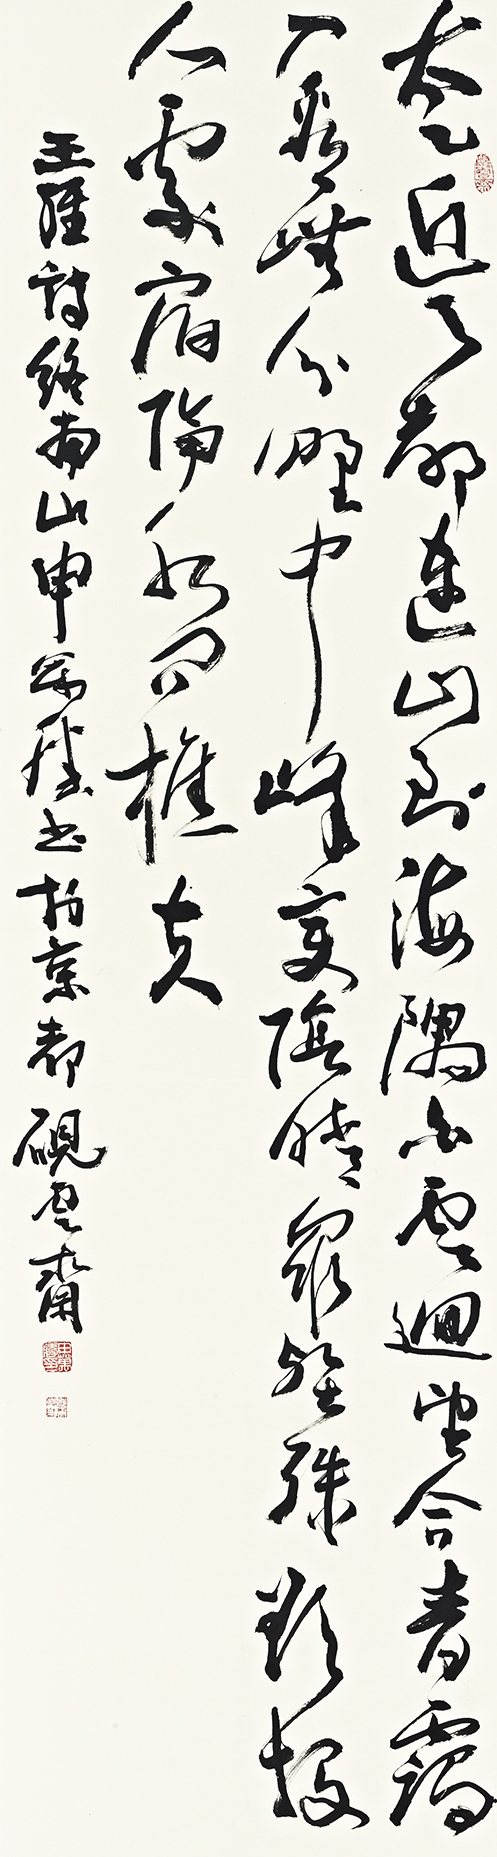 太乙近天都連山到海隅白雲迴望合青靄
入看無分野中峰變陰晴衆壑殊欲投
人處宿隔水問樵夫
王維詩終南山申萬勝書於京都硯雲齋